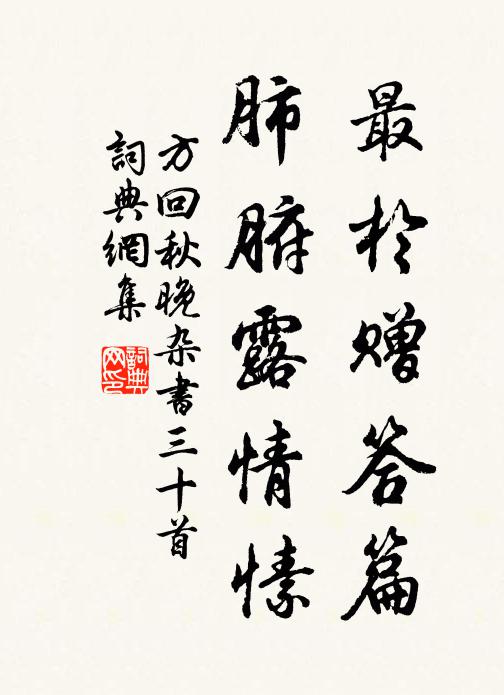 最於赠答篇
肺腑露情愫
方回秋晚杂书三十首
詞典網集
詞典网印